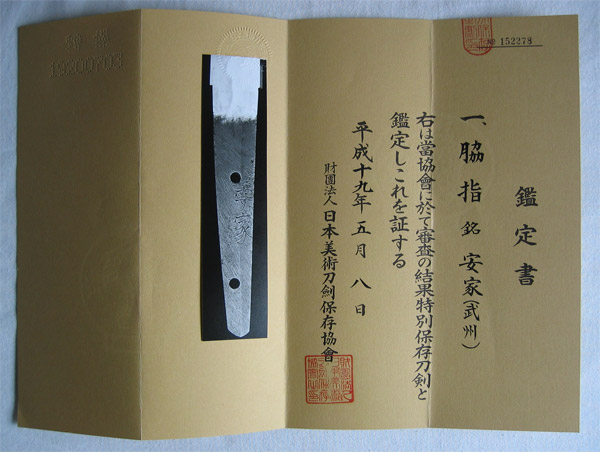 № 152278
鑑定書
一、脇指 銘 安家(武州)
右は當協會に於て審査の結果特別保存刀剣と
鑑定しこれを証する
平成十九年五月八日
財團法人 日本美術刀劍保存協會
安家